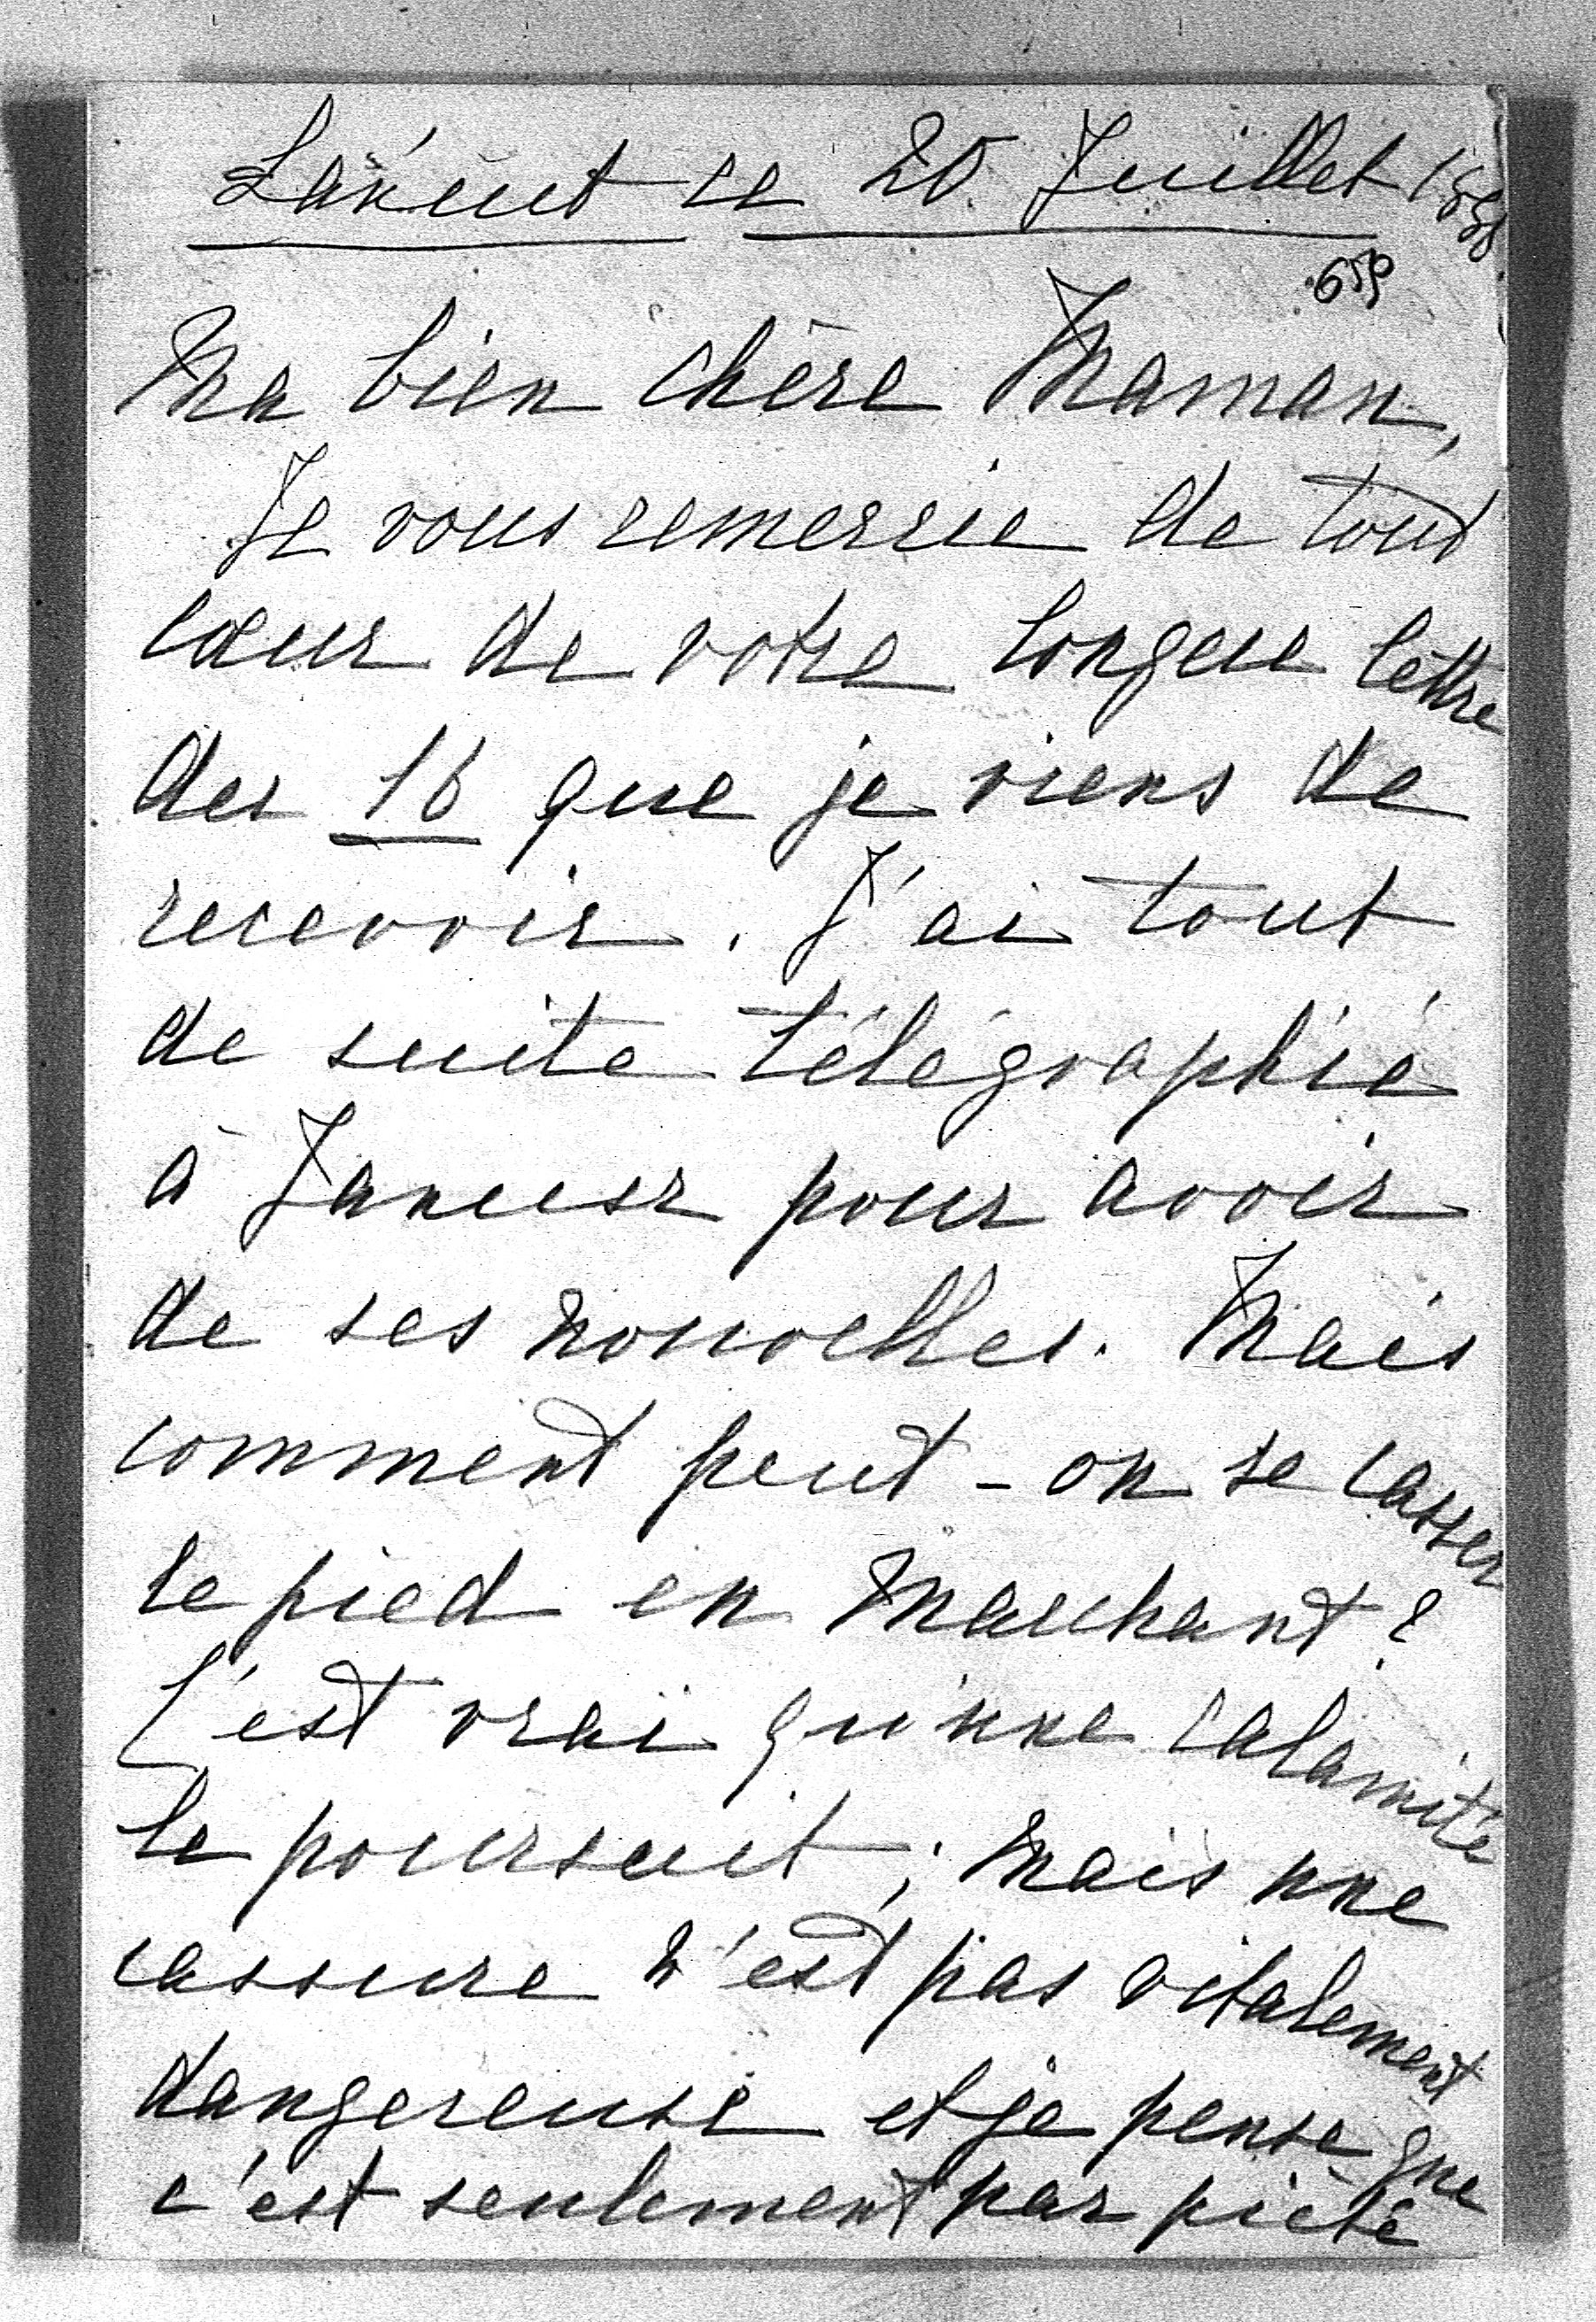 Łańcut ce 20 Juillet 1898
659
Ma bien chère Maman,
Je vous remercie de tout
cœur de votre longue lettre
des 16 que je viens de
recevoir. J'ai tout
de suite télégraphié
à Janusz pour avoir
de ses nouvelles. Mais
comment peut-on se casser
le pied en marchant?
C'est vrai qu'une calamité
le poursuit; mais une
cassure n'est pas vitalement
dangereuse et je pense que
c'est seulement par piété